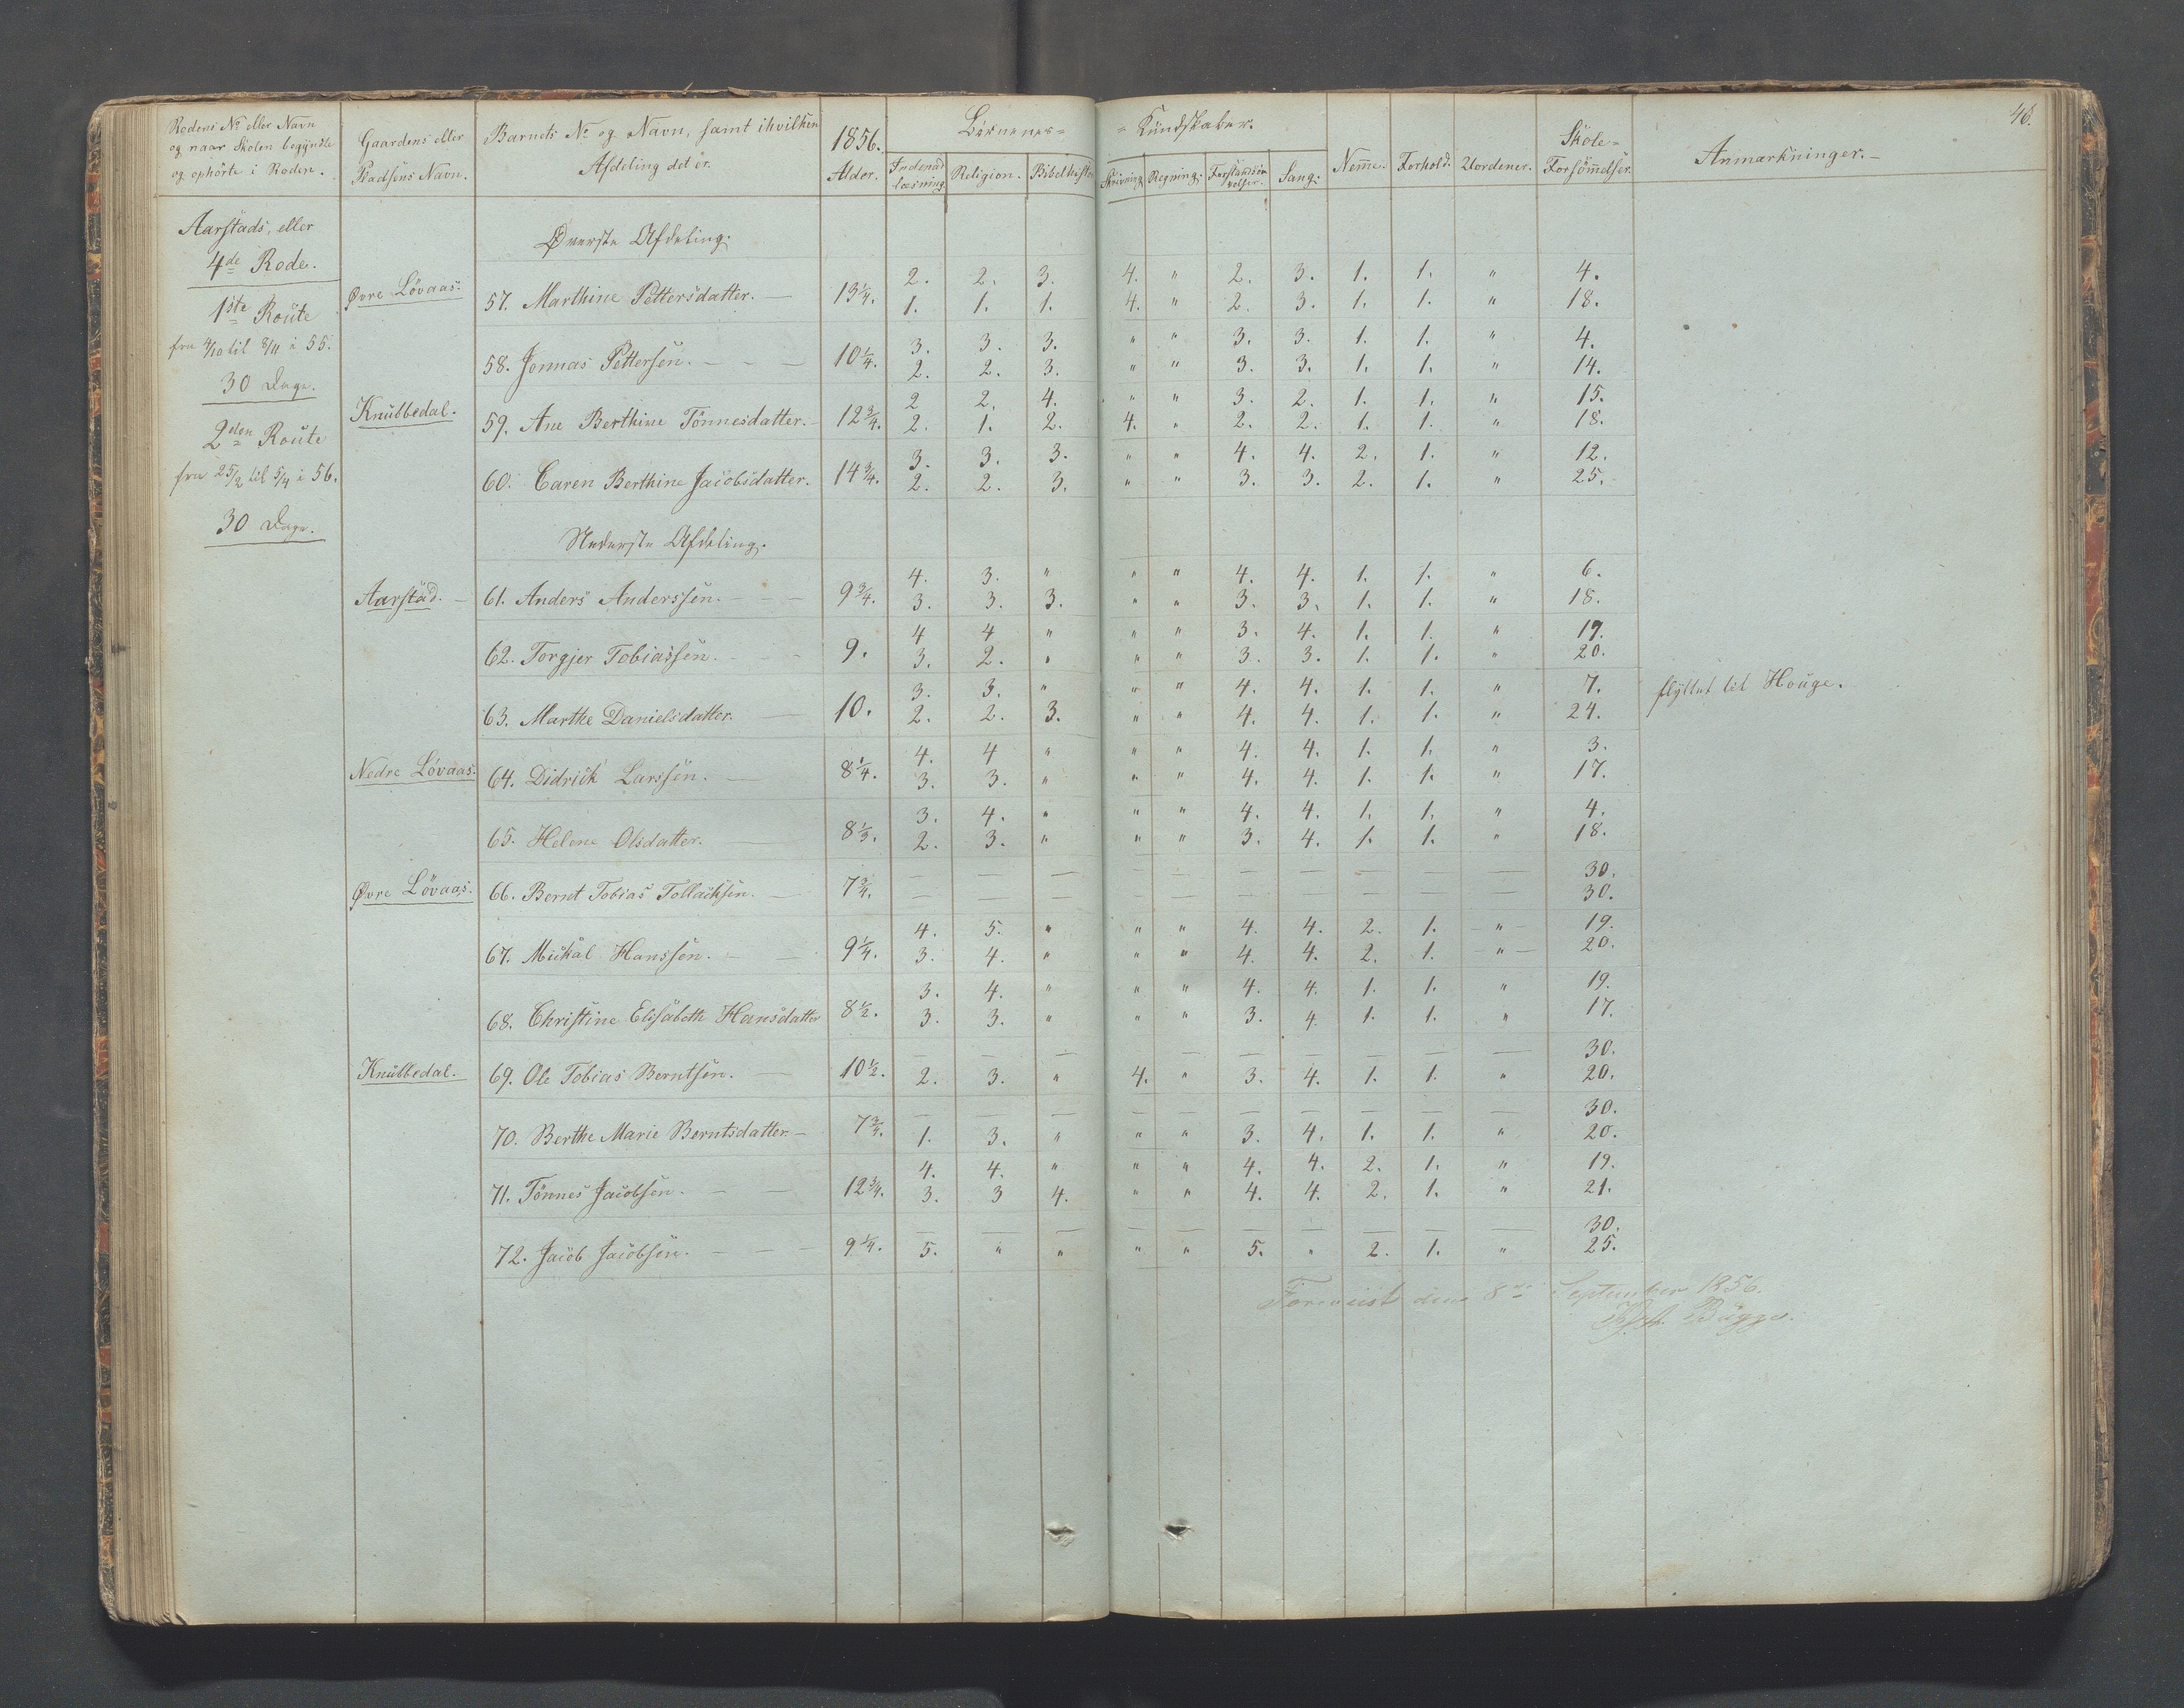 48.
Rodens No eller Navn
og naar Skolen begyndte
og ophörte i Roden.
Gaardens eller
Pladsens Navn.
Barnets No og Navn, samt ihvilken
Afdeling det er.
1856.
Alder.
Börnenes= =Kundskaber.
Indenad
læsning Religion. Bibelhistor Skrivning Regning. Forstandsöe
velser. Sang. Nem̅e. Forhold. Uordener. Skole=
Forsöm̅elser. Anmærkninger.—
Aarstads, eller
4de Rode.
1ste Route
fra 4/10 til 8/11 i 55.
30 Dage.
2den Route
fra 25/2 til 5/4 i 56.
30 Dage.
Øverste Afdeling.
2. 2. 3. 4. " 2. 3. 1. 1. " 4.
Øvre Lövaas. 57. Marthine Pettersdatter. — 13¼. 1. 1. 1. 4. " 2. 3. 1. 1. " 18.
3. 3. 3. " " 3. 3. 1. 1. " 4.
58. Jonnas Pettersen. — — — 10¼. 2. 2. 3. " " 3. 3. 1. 1. " 14.
2 2. 4. " " 3. 2. 1. 1. " 15.
Knubbedal. 59. Ane Berthine Tönnesdatter. — 12¾. 2. 1. 2. 4. " 2. 2. 1. 1. " 18.
3. 3. 3. " " 4. 4. 2. 1. " 12.
60. Caren Berthine Jacobsdatter. 14¾. 2. 2. 3. " " 3. 3. 2. 1. " 25.
Nederste Afdeling.
4. 3. " " " 4. 4. 1. 1. " 6.
Aarstad. — 61. Anders Anderssen. — — 9¾. 3. 3. 3. " " 3. 3. 1. 1. " 18.
4 4 " " " 3. 4. 1. 1. " 19.
62. Torgjer Tobiassen. — — 9. 3. 2. " " " 3. 3. 1. 1. " 20.
3. 3. " " " 4. 4. 1. 1. " 7. flyttet til Houge.
63. Marthe Danielsdatter. — 10. 2. 2. 3. " " 4. 4. 1. 1. " 24.
4. 4 " " " 4. 4. 1. 1. " 3.
Nedre Lövaas. 64. Didrick Larssen. — 8¼. 3. 3. " " " 4. 4. 1. 1. " 17.
3. 4. " " " 4. 4. 1. 1. " 4.
65. Helene Olsdatter. — 8⅓. 2. 3. " " " 3. 4. 1. 1. " 18.
— — — — — — — — — — 30.
Øvre Lövaas. 66. Bernt Tobias Tollacksen. — 7¾. — — — — — — — — — — 30.
4. 5. " " " 4. 4. 2. 1. — " — 19.
67. Mickal Hanssen. — — 9¼. 3. 4. " " " 4. 4. 2. 1. — " — 20.
3. 4. " " " 4. 4. 1. 1. " 19.
68. Christine Elisabeth Hansdatter 8½. 3. 3. " " " 3. 4. 1. 1. " 17.
— — — — — — — — — 30.
Knubbedal. 69. Ole Tobias Berntsen. — 10½. 2. 3. " 4. " 3. 4. 1. 1. " 20.
— — — — — — — — — — 30.
70. Berthe Marie Berntsdatter. — 7¾. 1. 3. " " " 3. 4. 1. 1. " 20.
4. 4. " " " 4. 4. 2. 1. " 19.
71. Tönnes Jacobsen. — — 12¾. 3. 3 4. " " 4. 4. 2. 1. " 21.
— — — — — — — — — — 30.
72. Jacob Jacobsen. — — — 9¼. 5. " " " " 5. " 2. 1. " 25.
Foreviist den 8de September 1856.
Bugge.